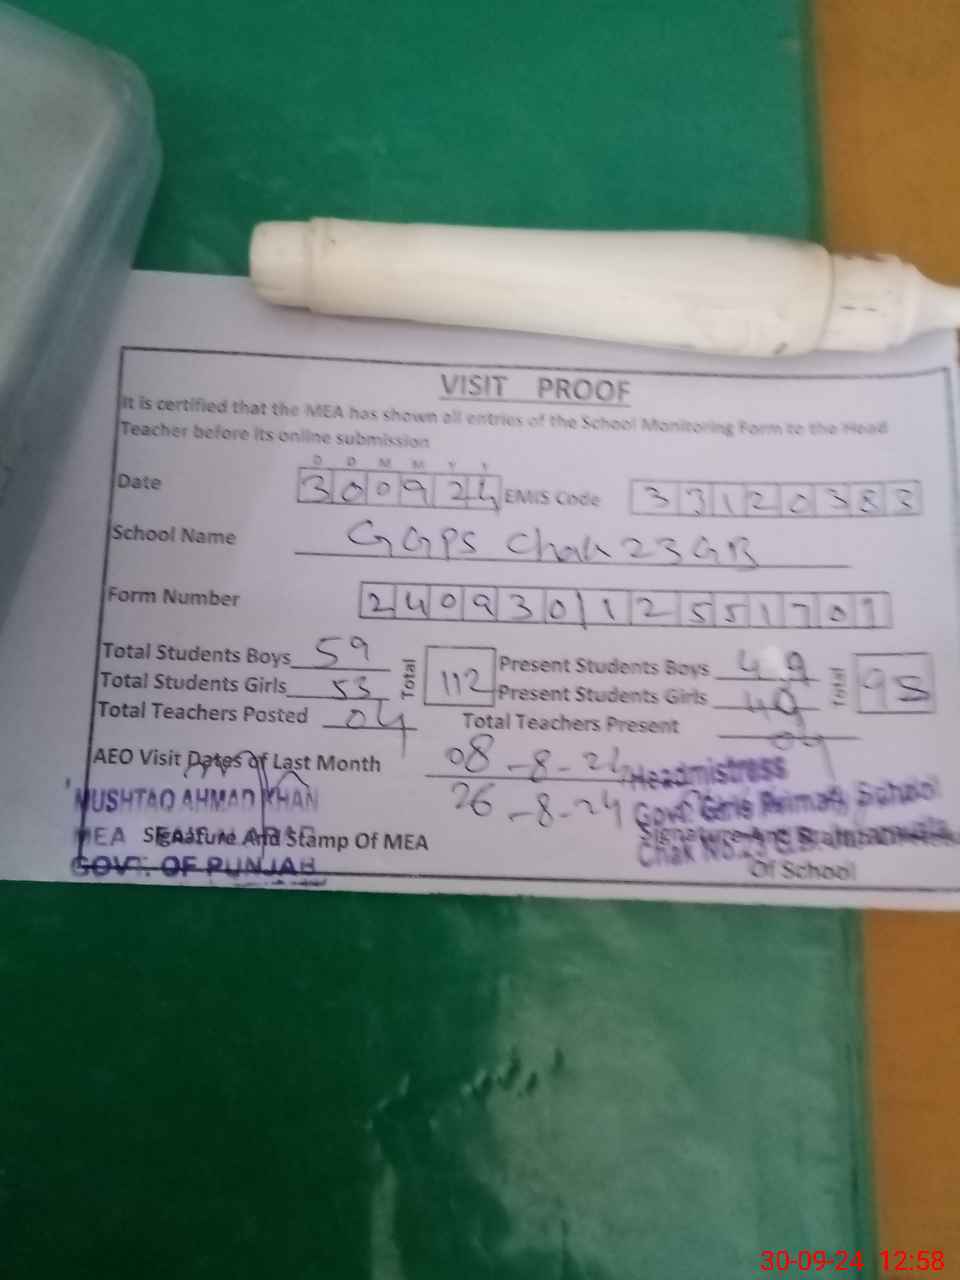 VISIT PROOF
It is certified that the MEA has shown all entries of the School Monitoring Form to the Head
Teacher before its online submission
D D M M Y Y
Date 300924 EMIS Code 33120383
School Name GGPS Chak 23 GB
Form Number 24093011255170
Total Students Boys 59 Total 112 Present Students Boys 49 Total 95
Total Students Girls 53 Present Students Girls
Total Teachers Posted 04 Total Teachers Present 04
AEO Visit Dates of Last Month 08-8-24
26-8-24
MUSHTAQ AHMAD KHAN
MEA
Signature And Stamp Of MEA
GOVT: OF PUNJAB
Headmistress
Govt. Girls Primary School
Chak No. 23 G.B.
Of School
30-09-24 12:58